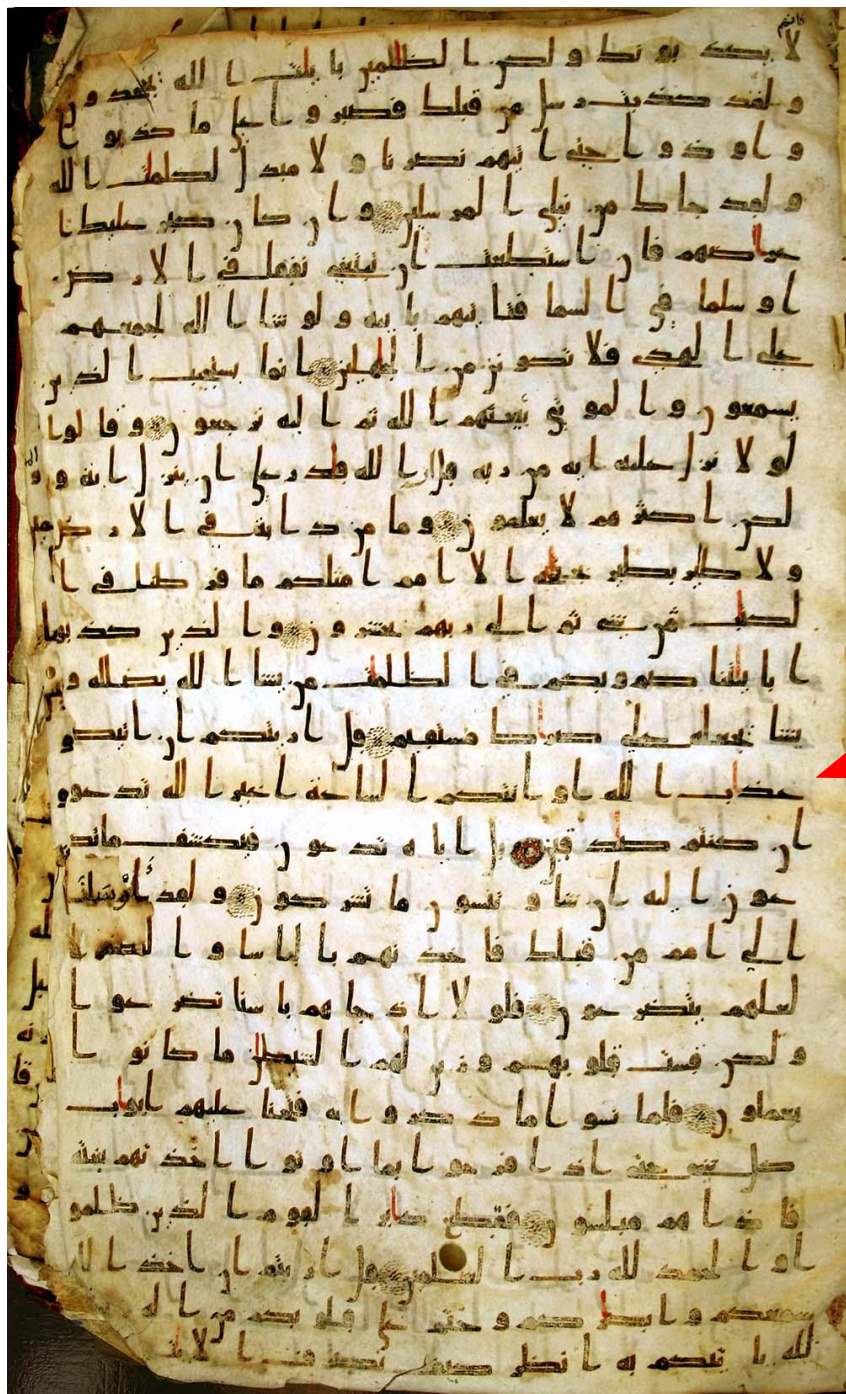 فانهم
لا يكذبونك ولكن الظلمين بايت الله يجحدون
ولقد كذبت رسل من قبلك فصبروا على ما كذبوا
واوذوا حتى اتيهم نصرنا ولا مبدل لكلمت الله
ولقد جاك من نباي المرسلين وان كان كبر عليك ا
عراضهم فان استطعت ان تبتغي نفقا في الارض
او سلما في السما فتاتيهم باية ولو شا الله لجمعهم
على الهدى فلا تكونن من الجهلين انما يستجيب الذين
يسمعون والموتى يبعثهم الله ثم اليه يرجعون وقالوا
لولا نزل عليه اية من ربه قل ان الله قدر على ان ينزل اية و
لكن اكثرهم لا يعلمون وما من دابة في الارض
ولا طير يطير بجنحيه الا امم امثلكم ما فرطنا في ا
لكتب من شي ثم الى ربهم يحشرون والذين كذبوا
بايتنا صم وبكم في الظلمت من يشا الله يضلله ومن
يشا يجعله على صرط مستقيم قل اريتكم ان اتيكم
عذاب الله او اتتكم الساعة اغير الله تدعون
ان كنتم صدقين بل اياه تدعون فيكشف ما تد
عون اليه ان شا وتنسون ما تشركون ولقد أرسلنا
الى امم من قبلك فاخذنهم بالباسا والضرا
لعلهم يتضرعون فلولا اذ جاهم باسنا تضرعوا
ولكن قست قلوبهم وزين لهم الشيطن ما كانوا
يعملون فلما نسوا ما ذكروا به فتحنا عليهم ابواب
كل شي حتى اذا فرحوا بما اوتوا اخذنهم بغتة
فاذا هم مبلسون فقطع دابر القوم الذين ظلمو
ا والحمد لله رب العلمين قل اريتم ان اخذ الله
سمعكم وابصركم وختم على قلوبكم من اله
الله ياتيكم به انظر كيف نصرف الايت